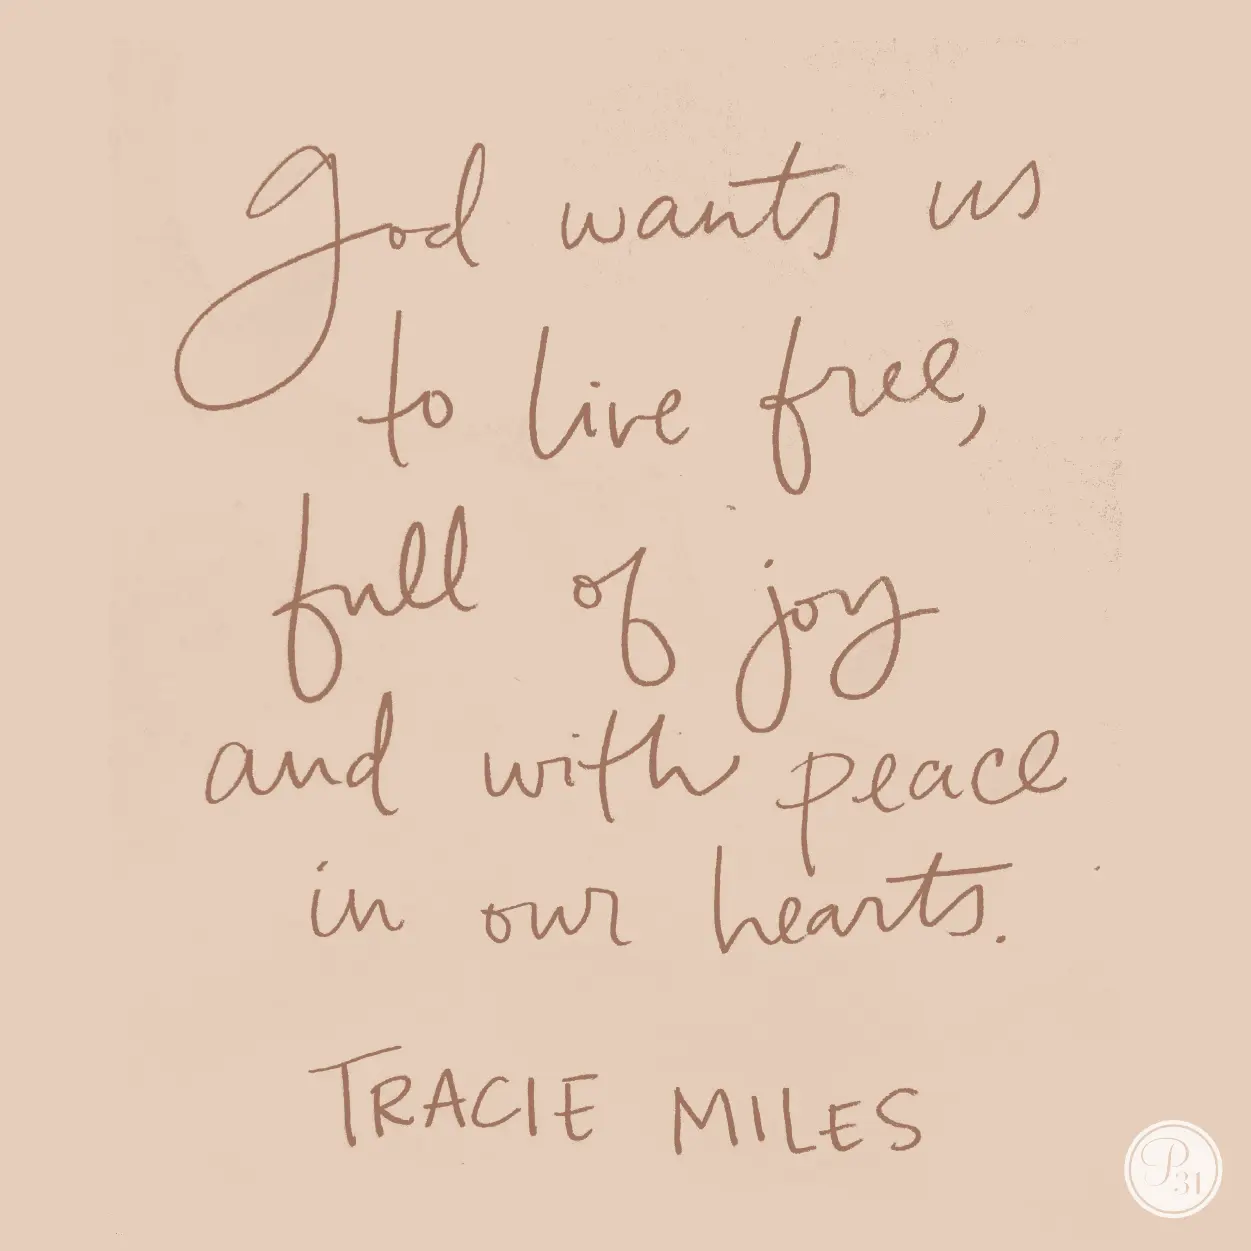 God wants us
to live free,
full of joy
and with peace
in our hearts.
TRACIE MILES
P31